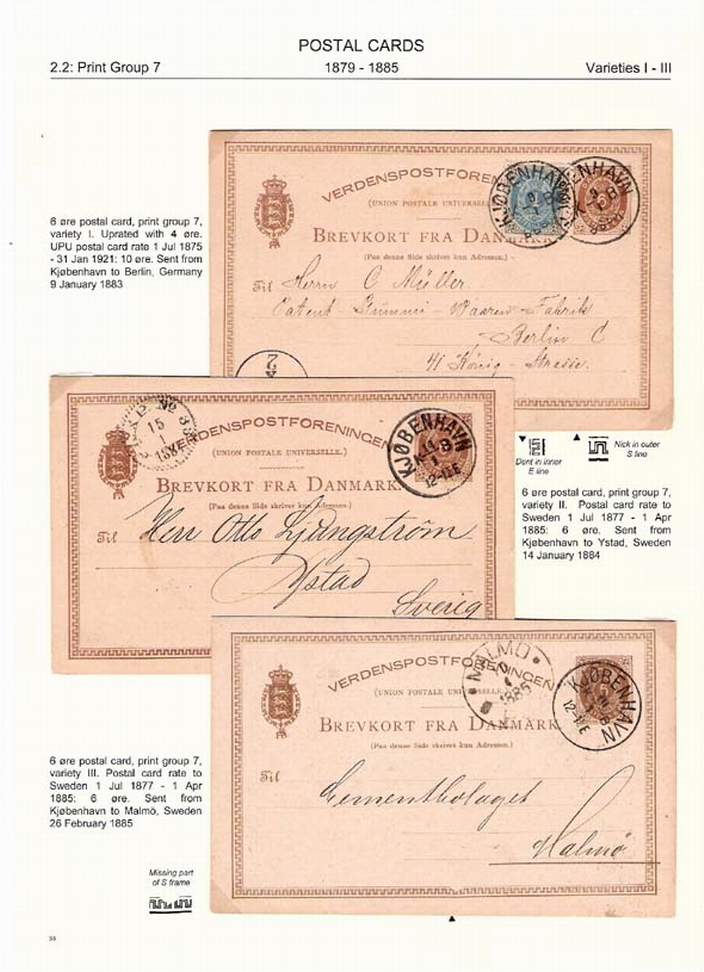 POSTAL CARDS
2.2: Print Group 7
1879 - 1885
Varieties I - III
6 øre postal card, print group 7,
variety I. Uprated with 4 øre.
UPU postal card rate 1 Jul 1875
- 31 Jan 1921: 10 øre. Sent from
Kjøbenhavn to Berlin, Germany
9 January 1883
VERDENSPOSTFOREN
(UNION POSTALE UNIVERSELLE
BREVKORT FRA DANMARK
(Paa denne Side skrives kun Adressen.)
KJØBENHAVN
KJØBENHAVN
Til Herrn C Müller
Patent-Gummi-Waaren-Fabrik
Berlin C
41 König-Strasse.
VERDENSPOSTFORENINGEN
(UNION POSTALE UNIVERSELLE.)
BREVKORT FRA DANMARK.
(Paa denne Side skrives kun Adressen.)
15
1
188
KJØBENHAVN
Til Herr Otto Ljungström
Ystad
Sverig
Dent in inner
E line
Nick in outer
S line
6 øre postal card, print group 7,
variety II. Postal card rate to
Sweden 1 Jul 1877 - 1 Apr
1885: 6 øre. Sent from
Kjøbenhavn to Ystad, Sweden
14 January 1884
VERDENSPOSTFORENINGEN
(UNION POSTALE UNIVERSELLE.)
BREVKORT FRA DANMARK
(Paa denne Side skrives kun Adressen.)
MALMÖ
1885
KJØBENHAVN
Til
Cementbolaget
Malmö
6 øre postal card, print group 7,
variety III. Postal card rate to
Sweden 1 Jul 1877 - 1 Apr
1885: 6 øre. Sent from
Kjøbenhavn to Malmö, Sweden
26 February 1885
Missing part
of S frame